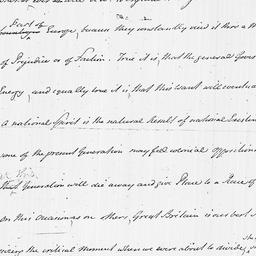 Part of
Europe, because they constantly view it thro' a M
of Prejudice or of Faction. True it is, that the general Gover
Energy, and equally true it is, that this want will eventual
A national Spirit is the natural Result of national Existen
some of the present Generation may feel colonial Opposition
that Generation will die away and give Place to a Race of
on this Occasion as on others, Great Britain is our best
the critical Moment when we were about to divide,